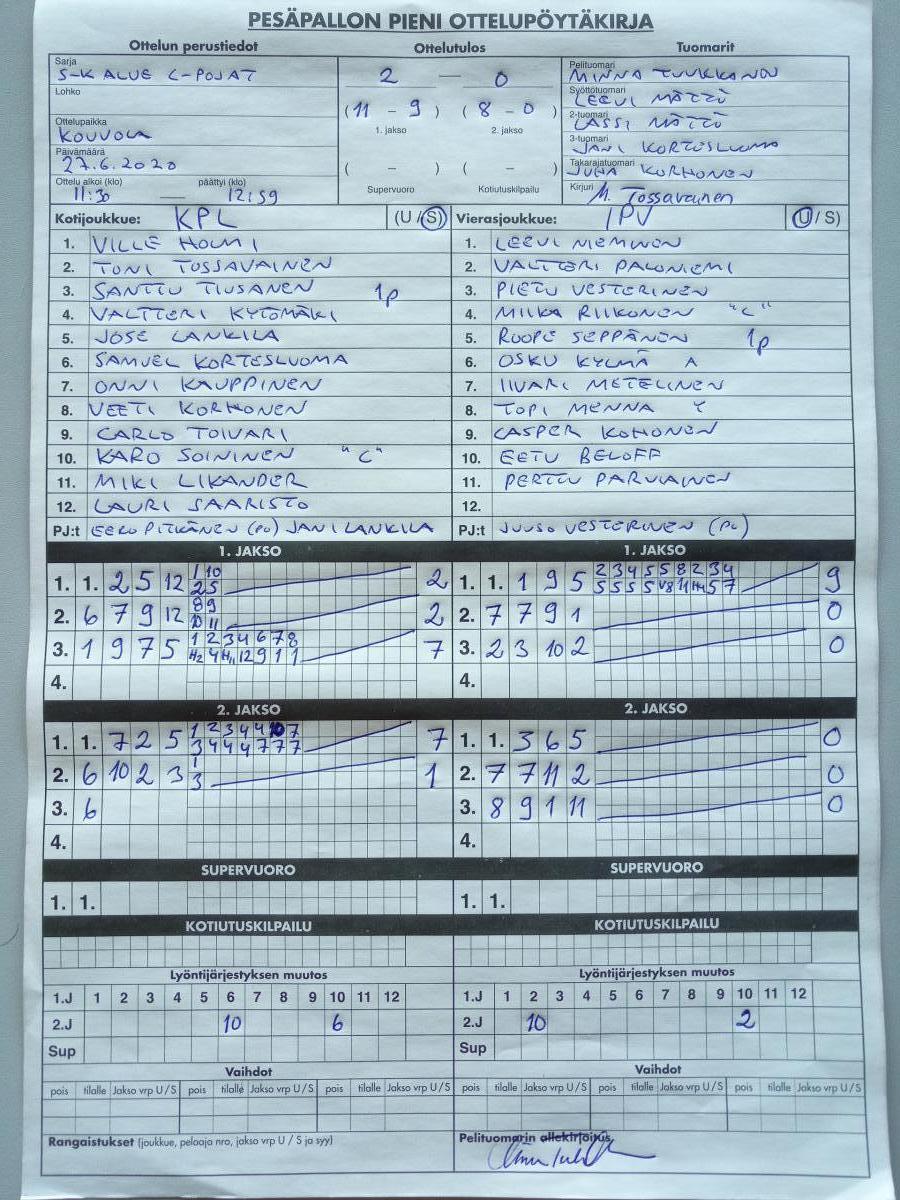 PESÄPALLON PIENI OTTELUPÖYTÄKIRJA
Ottelun perustiedot Ottelutulos Tuomarit
Sarja
S-K ALUE C-POJAT
Lohko
Ottelupaikka
KOUVOLA
Päivämäärä
27.6.2020
Ottelu alkoi (klo) päättyi (klo)
11:30 — 12:59
2 — 0
(11 - 9) (8 - 0)
1. jakso 2. jakso
( - ) ( - )
Supervuoro Kotiutuskilpailu
Pelituomari
MINNA TUUKKANEN
Syöttötuomari
LEEVI MÄTTÖ
2-tuomari
LASSI MÄTTÖ
3-tuomari
JANI KORTESLUOMA
Takarajatuomari
JUHA KORHONEN
Kirjuri
M. Tossavainen
Kotijoukkue: KPL (U/S)
1. VILLE HOLMI
2. TONI TOSSAVAINEN
3. SANTTU TIUSANEN 1p
4. VALTTERI KYTÖMÄKI
5. JOSE LANKILA
6. SAMUEL KORTESLUOMA
7. ONNI KAUPPINEN
8. VEETI KORHONEN
9. CARLO TOIVARI
10. KARO SOININEN "C"
11. MIKI LIKANDER
12. LAURI SAARISTO
PJ:t EERO PITKÄNEN (PJ) JANI LANKILA
Vierasjoukkue: IPV (U/S)
1. LEEVI NIEMINEN
2. VALTTERI PALONIEMI
3. PIETU VESTERINEN
4. MIIKA RIIKONEN "C"
5. ROOPE SEPPÄNEN 1p
6. OSKU KYLMÄ A
7. IIVARI METELINEN
8. TOPI MENNA Y
9. CASPER KOHONEN
10. EETU BELOFF
11. PERTTU PARVIAINEN
12.
PJ:t JUUSO VESTERINEN (PJ)
1. JAKSO
1. 1. 2 5 12 1 10 2
2 5
2. 6 7 9 12 8 9 2
10 11
3. 1 9 7 5 1 2 3 4 6 7 8 7
H2 4 H11 12 9 1 1
4.
1. JAKSO
1. 1. 1 9 5 2 3 4 5 5 8 2 3 4 9
5 5 5 5 V8 11 H4 5 7
2. 7 7 9 1 0
3. 2 3 10 2 0
4.
2. JAKSO
1. 1. 7 2 5 1 2 3 4 4 10 7 7
3 4 4 4 7 7 7
2. 6 10 2 3 1 1
3
3. 6
4.
2. JAKSO
1. 1. 3 6 5 0
2. 7 7 11 2 0
3. 8 9 1 11 0
4.
SUPERVUORO SUPERVUORO
1. 1. 1. 1.
KOTIUTUSKILPAILU KOTIUTUSKILPAILU
Lyöntijärjestyksen muutos Lyöntijärjestyksen muutos
1.J 1 2 3 4 5 6 7 8 9 10 11 12 1.J 1 2 3 4 5 6 7 8 9 10 11 12
2.J 10 6 2.J 10 2
Sup Sup
Vaihdot Vaihdot
pois tilalle Jakso vrp U/S pois tilalle Jakso vrp U/S pois tilalle Jakso vrp U/S pois tilalle Jakso vrp U/S pois tilalle Jakso vrp U/S pois tilalle Jakso vrp U/S
Rangaistukset (joukkue, pelaaja nro, jakso vrp U / S ja syy) Pelituomarin allekirjoitus